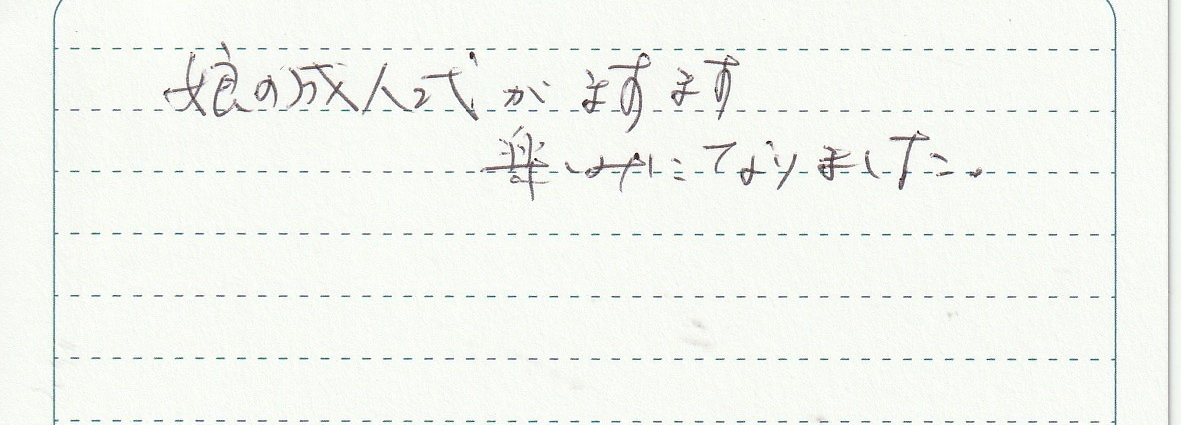 娘の成人式がますます
楽しみになりました。